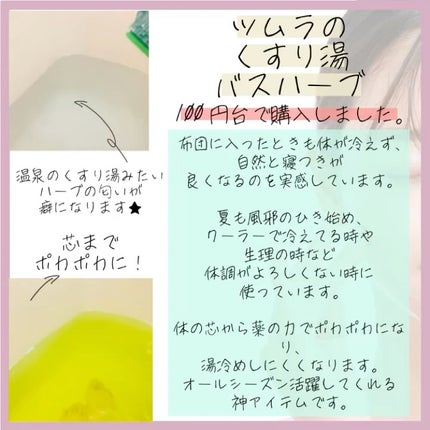 ツムラの
くすり湯
バスハーブ
100円台で購入しました。
温泉のくすり湯みたい
ハーブの匂いが
癖になります★
芯まで
ポカポカに！
布団に入ったときも体が冷えず、
自然と寝つきが
良くなるのを実感しています。
夏も風邪のひき始め、
クーラーで冷えてる時や
生理の時など
体調がよろしくない時に
使っています。
体の芯から薬の力でポカポカにな
り、
湯冷めしにくくなります。
オールシーズン活躍してくれる
神アイテムです。